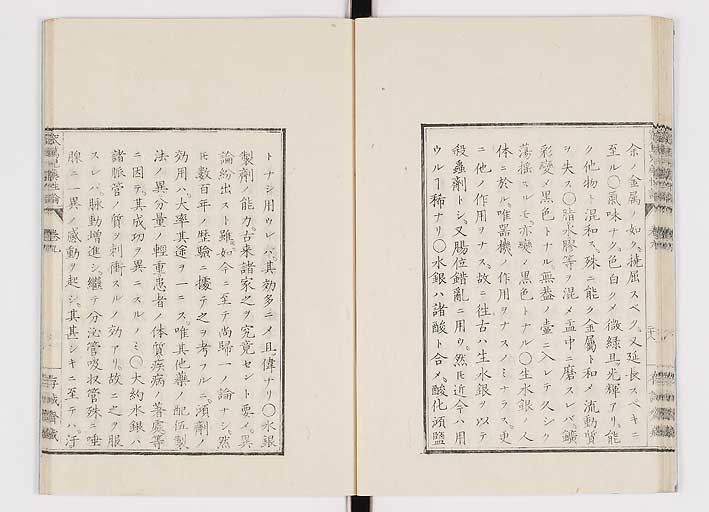 余ノ金属ノ如ク、撓屈スベク、又延長スベキニ
至ル〇氣味ナク、色白クメ微緑且光輝アリ、能
ク他物ト混和ス、殊ニ能ク金属ト和メ流動質
ヲ失ス〇脂水膠等ヲ混メ盂中ニ磨スレバ、鑛
彩變メ黒色トナル、無蓋ノ壷ニ入レテ久シク
蕩揺スルモ、亦変メ黒色トナル〇生水銀ノ人
体ニ於ル、唯器機ノ作用ヲナスノミナラス、更
ニ他ノ作用ヲナス、故ニ徃古ハ生水銀ヲ以テ
殺蟲剤トシ、又腸位錯亂ニ用ウ、然𪜈近今ハ用
ウルヿ稀ナリ〇水銀ハ諸酸ト合メ、酸化頒鹽
トナシ用ウレハ、其効多ニメ且偉ナリ〇水銀
製剤ノ能力、古来諸家之ヲ究竟セント要メ、異
論紛出スト雖、如今ニ至テ尚歸一ノ論ナシ、然
𪜈数百年ノ歴驗ニ據テ之ヲ考フルニ、頒剤ノ
効用ハ、大率其途ヲ一ニス、唯其他藥ノ配伍製
法ノ異分量ノ輕重患者ノ体質疾病ノ著處等
ニ因テ、其成功ヲ異ニスルノミ〇大約水銀ハ
諸脈管ノ質ヲ刺衝スルノ効アリ、故ニ之ヲ服
スレハ、脉動増進シ、繼テ分泌管吸収管殊ニ唾
腺ニ一異ノ感動ヲ起シ、其甚シキニ至テハ、汗
卷九